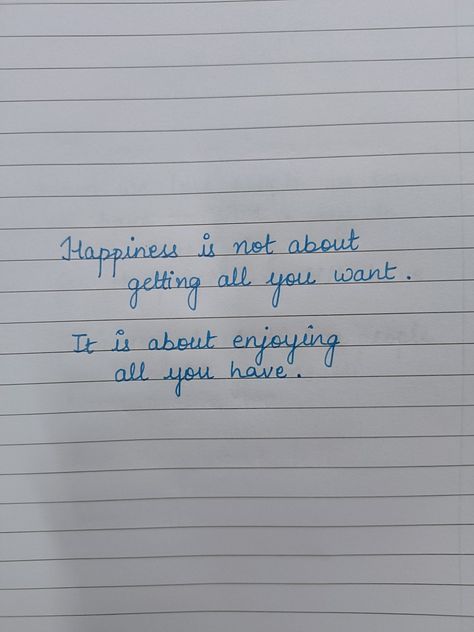 Happiness is not about
getting all you want.
It is about enjoying
all you have.